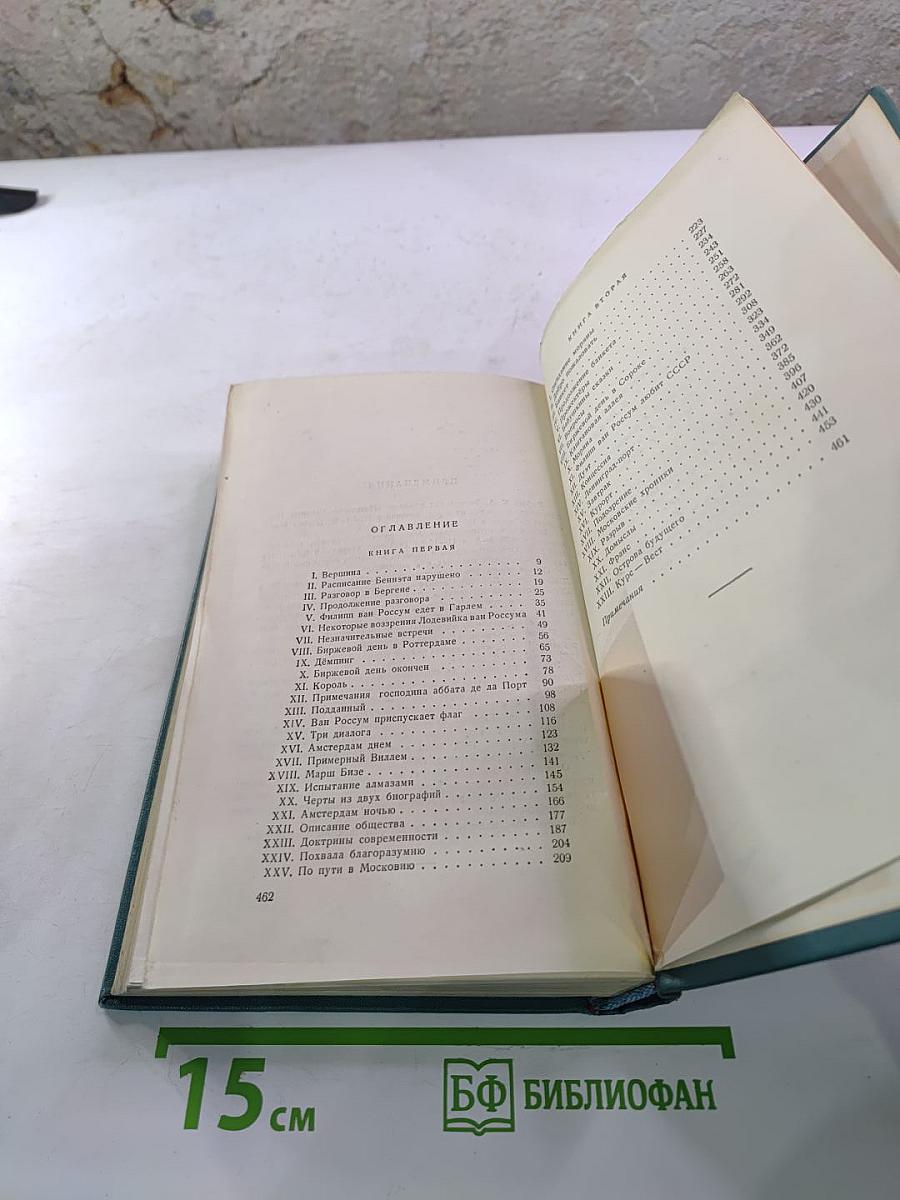 ОГЛАВЛЕНИЕ
КНИГА ПЕРВАЯ
I. Вершина . . . 9
II. Расписание Беннэта нарушено . . . 12
III. Разговор в Бергене . . . 19
IV. Продолжение разговора . . . 25
V. Филипп ван Россум едет в Гарлем . . . 35
VI. Некоторые воззрения Лодевийка ван Россума 41
VII. Незначительные встречи . . . 49
VIII. Биржевой день в Роттердаме . . . 56
IX. Дёмпинг . . . 65
X. Биржевой день окончен . . . 73
XI. Король . . . 78
XII. Примечания господина аббата де ла Порт 90
XIII. Подданный . . . 98
XIV. Ван Россум приспускает флаг . . . 108
XV. Три диалога . . . 116
XVI. Амстердам днем . . . 123
XVII. Примерный Виллем . . . 132
XVIII. Марш Бизе . . . 141
XIX. Испытание алмазами . . . 145
XX. Черты из двух биографий . . . 154
XXI. Амстердам ночью . . . 166
XXII. Описание общества . . . 177
XXIII. Доктрины современности . . . 187
XXIV. Похвала благоразумию . . . 204
XXV. По пути в Московию . . . 209
462
КНИГА ВТОРАЯ
223
227
пожаловать . . . 234
243
Продолжение банкета . . . 251
Прожектёры . . . 258
Бабушкины сказки . . . 263
Вопросы . . . 272
Биржевой день в Сороке . . . 281
Каштановая аллея . . . 292
X. Моряна . . . 308
XI. Филипп ван Россум любит СССР . . . 323
XII. Дуэт . . . 334
XIII. Концессия . . . 349
XIV. Ленинград-порт . . . 362
XV. Завтрак . . . 372
XVI. Курорт . . . 385
XVII. Подозрение . . . 396
XVIII. Московские хроники . . . 407
XIX. Разрыв . . . 420
XX. Домыслы . . . 430
XXI. Франс . . . 441
XXII. Острова будущего . . . 453
XXIII. Курс — Вест
Примечания . . . 461
15 см
БФ БИБЛИОФАН